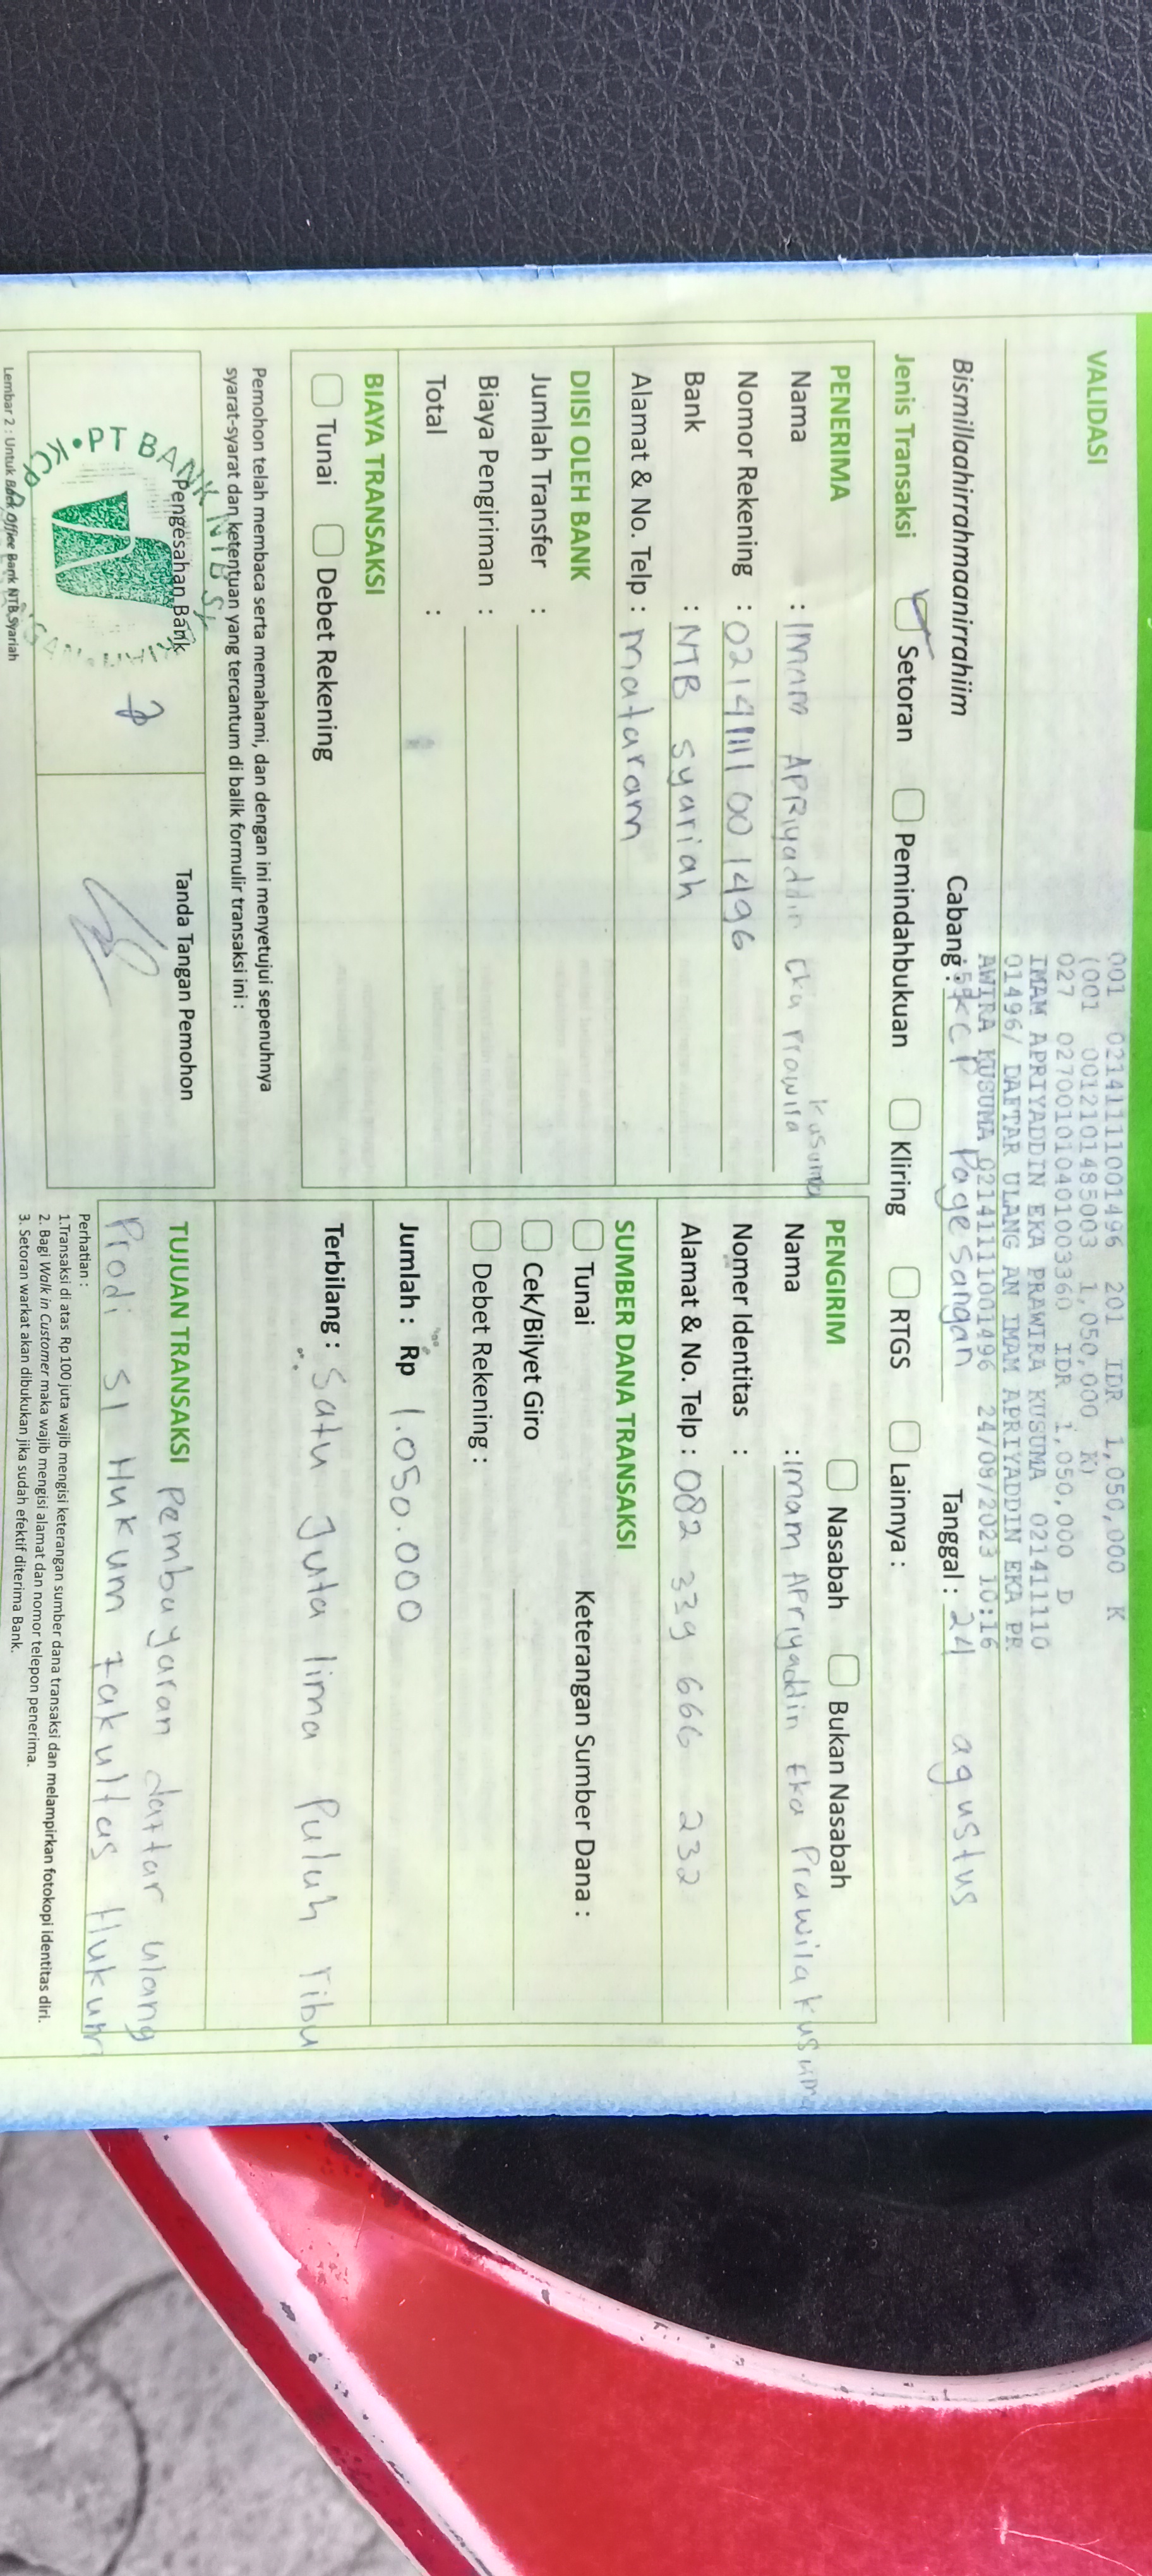 VALIDASI
001 0214111001496 201 IDR 1,050,000 K
(001 0012101485003 1,050,000 K)
027 0270010104010003360 IDR 1,050,000 D
IMAM APRIYADDIN EKA PRAWIRA KUSUMA 02141110
01496/ DAFTAR ULANG AN IMAM APRIYADDIN EKA PR
AWIRA KUSUMA 0214111001496 24/08/2023 10:16
Bismillaahirrahmaanirrahiim
Cabang : KCP Pagesangan
Tanggal : 24 agustus
Jenis Transaksi Setoran Pemindahbukuan Kliring RTGS Lainnya :
PENERIMA
Nama : IMAM APRIyaddin Eka Prawira Kusuma
Nomor Rekening : 0214111001496
Bank : NTB syariah
Alamat & No. Telp : mataram
DIISI OLEH BANK
Jumlah Transfer :
Biaya Pengiriman :
Total :
BIAYA TRANSAKSI
Tunai Debet Rekening
Pemohon telah membaca serta memahami, dan dengan ini menyetujui sepenuhnya
syarat-syarat dan ketentuan yang tercantum di balik formulir transaksi ini :
Pengesahan Bank
PT BANK NTB SY
Tanda Tangan Pemohon
Lembar 2 : Untuk Back Office Bank NTB Syariah
PENGIRIM Nasabah Bukan Nasabah
Nama : Imam Apriyaddin Eka Prawira kusuma
Nomer Identitas :
Alamat & No. Telp : 082 339 666 232
SUMBER DANA TRANSAKSI
Tunai Keterangan Sumber Dana :
Cek/Bilyet Giro
Debet Rekening :
Jumlah : Rp 1.050.000
Terbilang : Satu Juta lima Puluh ribu
TUJUAN TRANSAKSI Pembayaran daftar ulang
Prodi S1 Hukum Fakultas Hukum
Perhatian :
1.Transaksi di atas Rp 100 juta wajib mengisi keterangan sumber dana transaksi dan melampirkan fotokopi identitas diri.
2. Bagi Walk in Customer maka wajib mengisi alamat dan nomor telepon penerima.
3. Setoran warkat akan dibukukan jika sudah efektif diterima Bank.